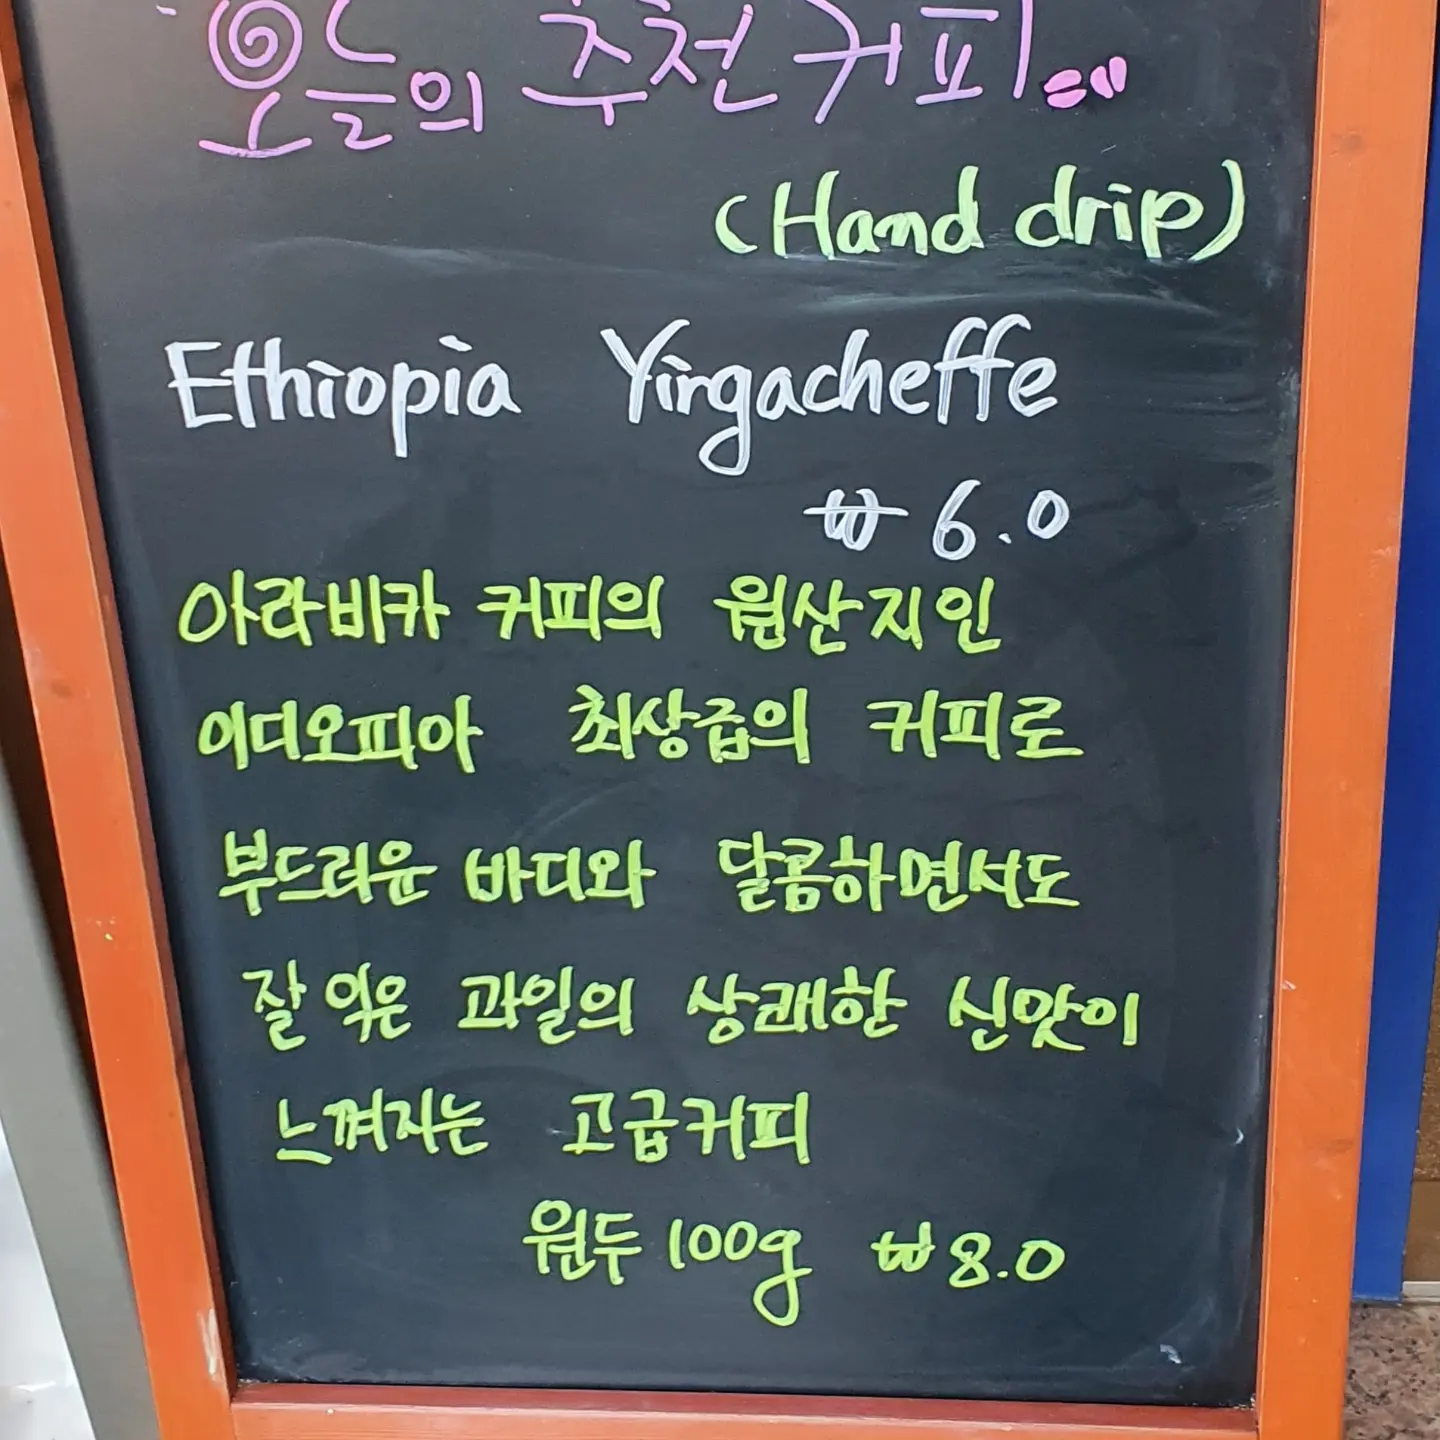 오늘의 추천커피
(Hand drip)
Ethiopia Yirgacheffe
₩ 6.0
아라비카 커피의 원산지인
이디오피아 최상급의 커피로
부드러운 바디와 달콤하면서도
잘 익은 과일의 상쾌한 신맛이
느껴지는 고급커피
원두 100g ₩8.0